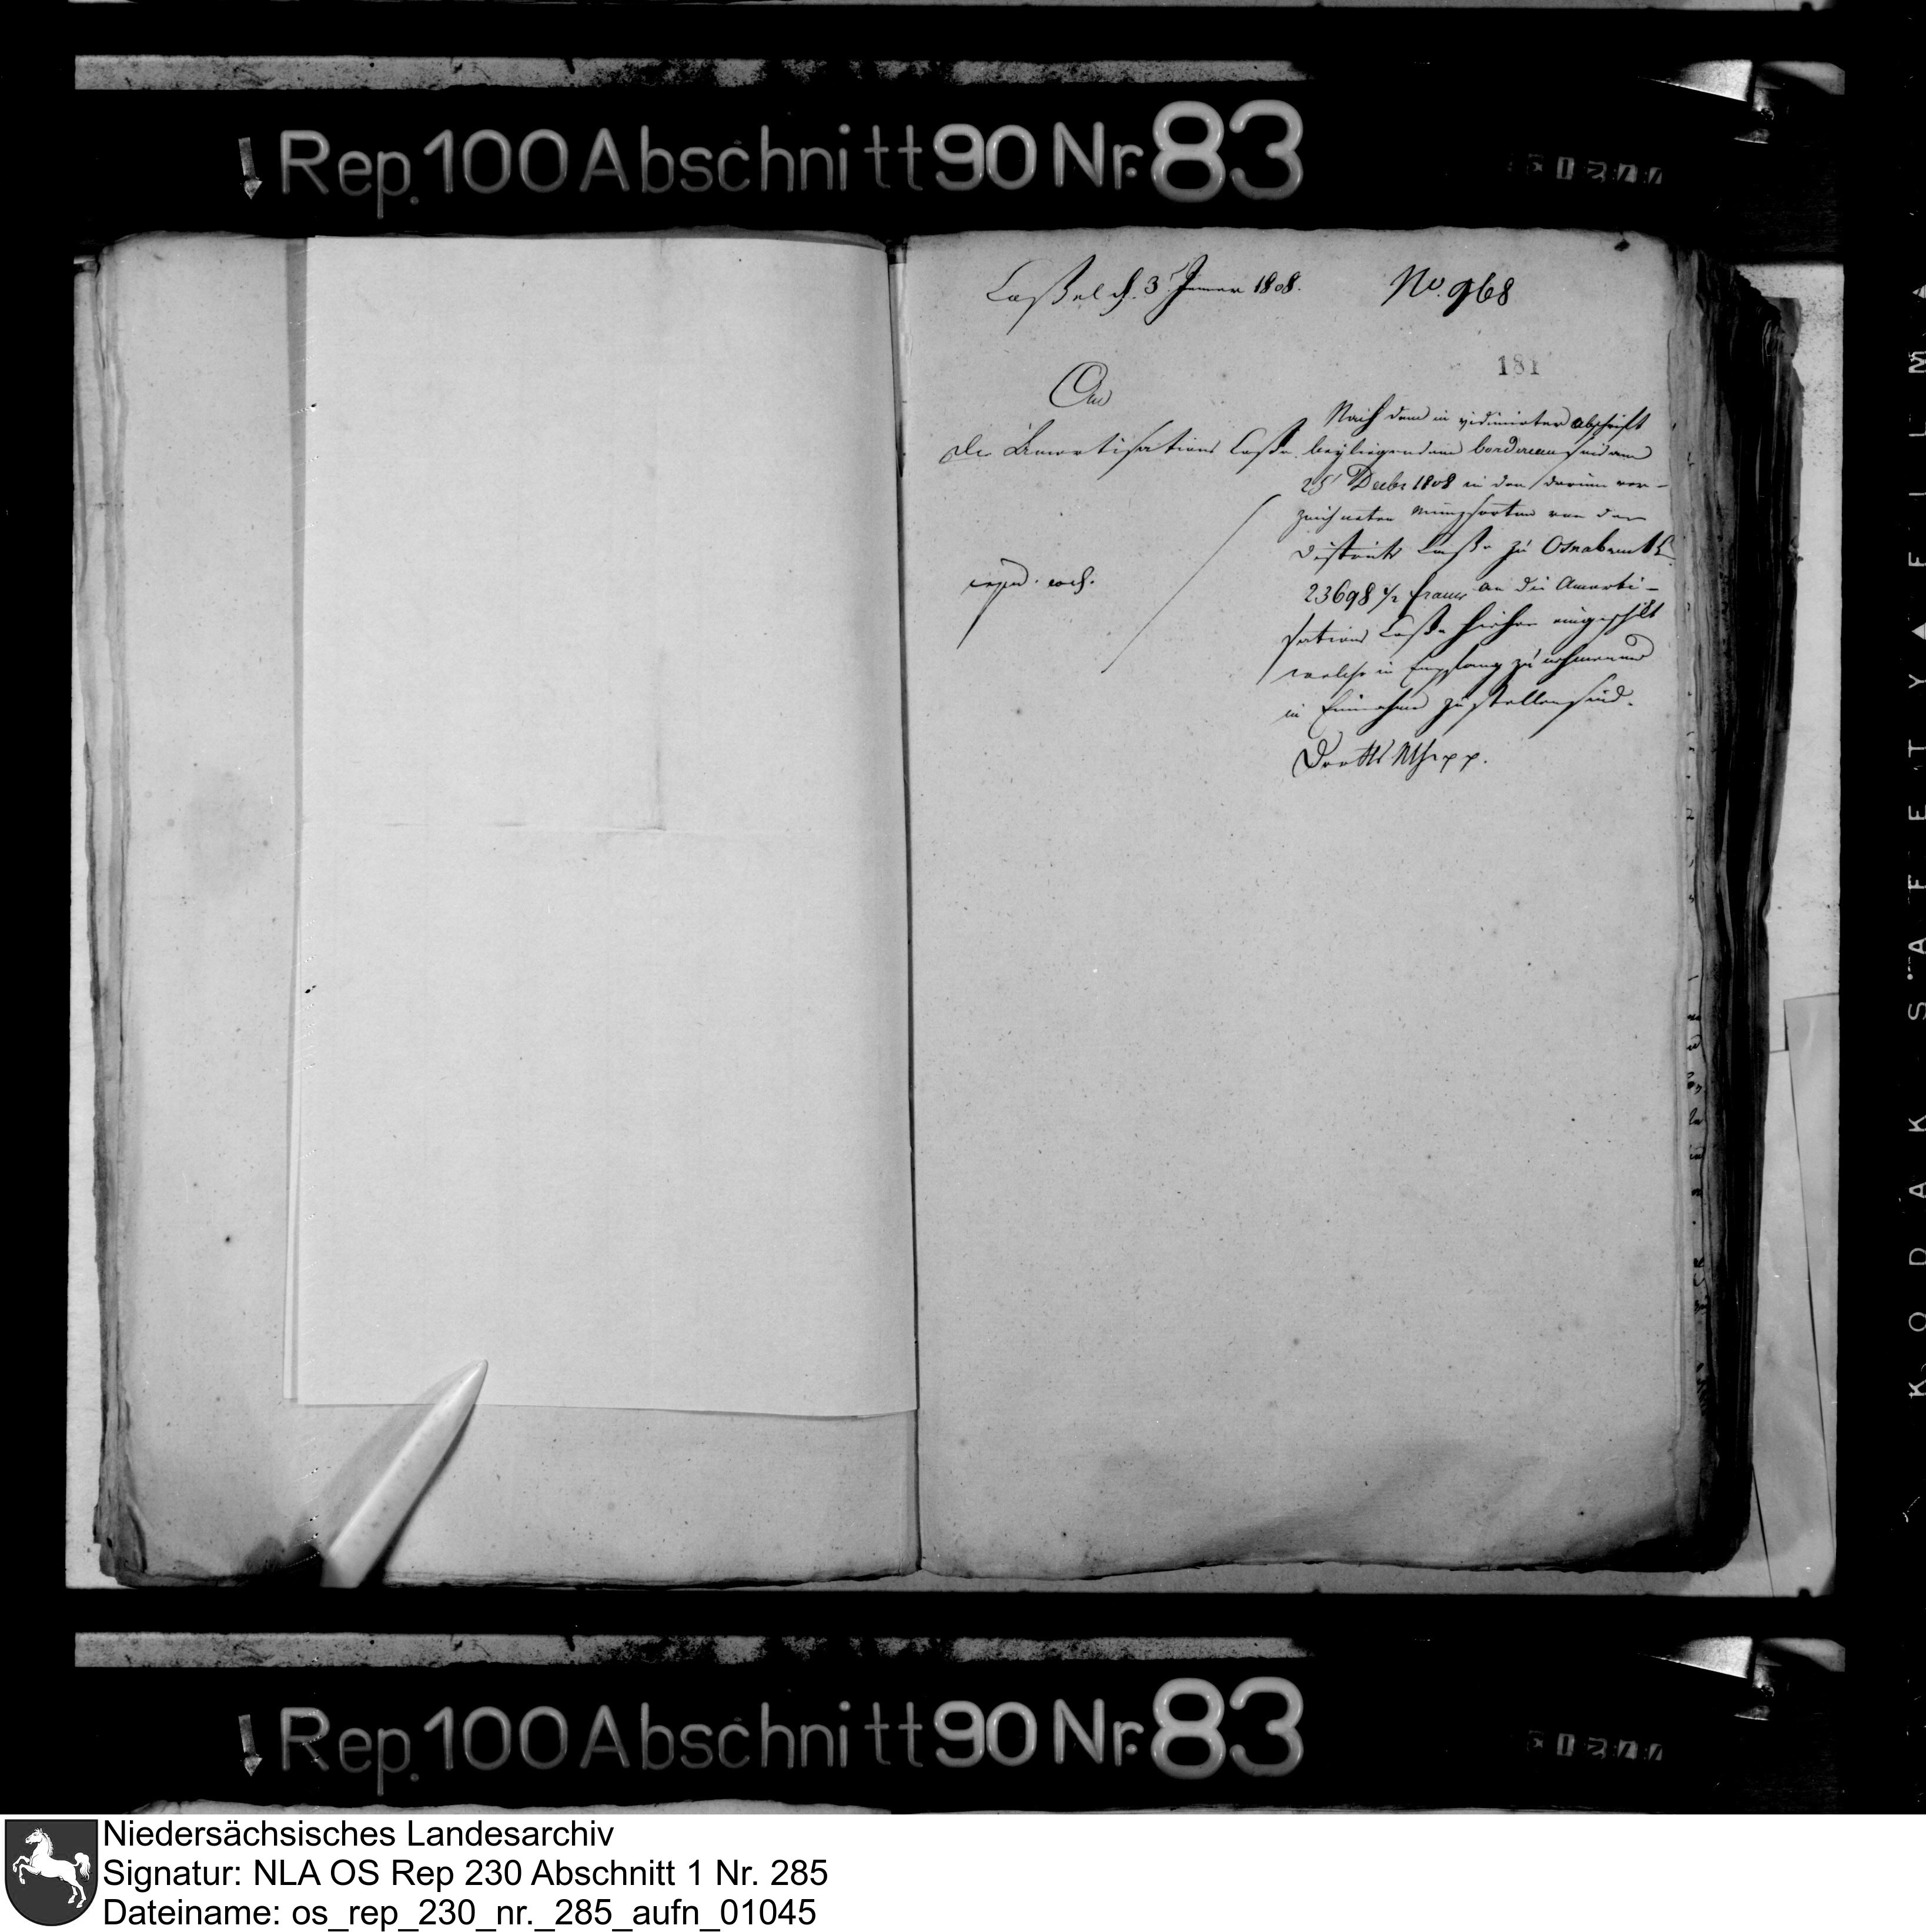 Rep. 100 Abschnitt 90 Nr. 83
Caßel d. 3 Januar 1808. No. 968
181
An
die Amortisations Casse
Nach dem in vidimirter Abschrift
beyliegendem bordereau sind am
25 Decbr 1808 in den darinn ver-
zeichneten Münzsorten von der
Districts Casse zu Osnabruck
23698 1/2 francs an die Amorti-
sations Casse hieher eingeschikt
welche in Empfang zu nehmen und
in Einnahme zu stellen sind.
exped. eod.
KODAK SAFETY FILM
Rep. 100 Abschnitt 90 Nr. 83
Niedersächsisches Landesarchiv
Signatur: NLA OS Rep 230 Abschnitt 1 Nr. 285
Dateiname: os_rep_230_nr._285_aufn_01045